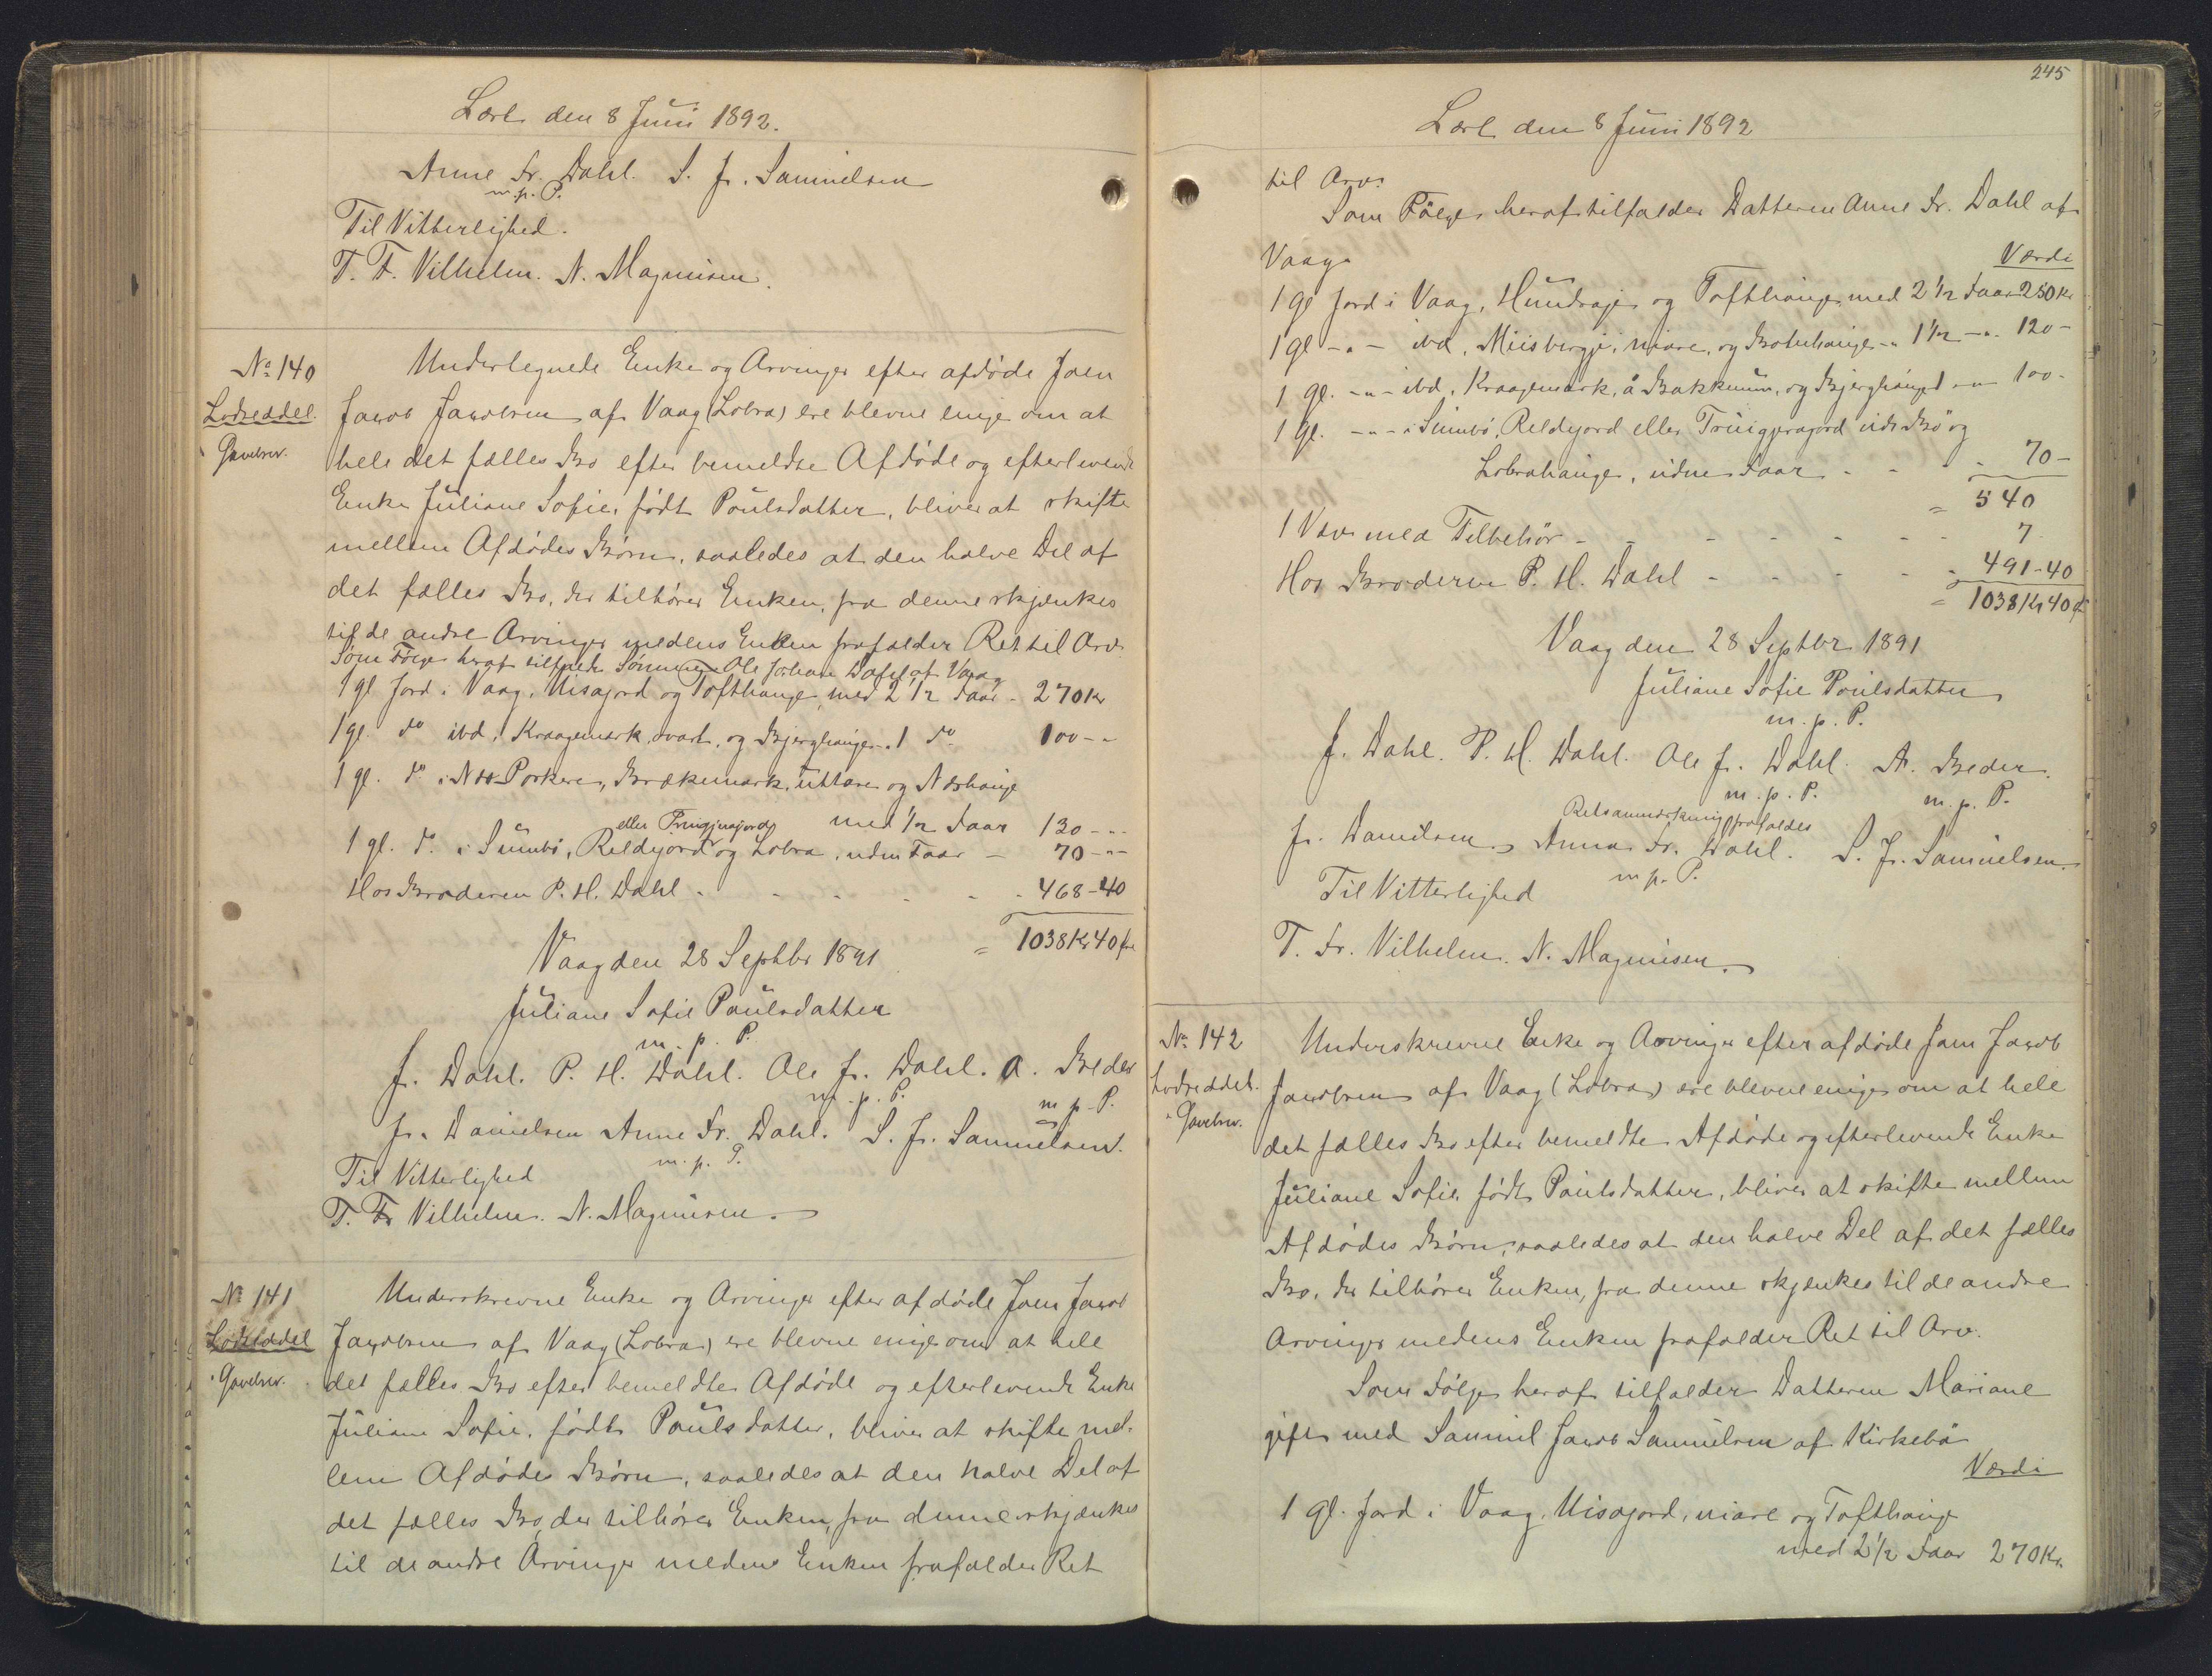 Læst den 8 Juni 1892.
Anne Fr. Dahl. S. J. Samuelsen
m.p.P.
Til Vitterlighed.
T. F. Vilhelm. N. Magnusen.
No 140
Lodseddel.
Gavebrev.
Undertegnede Enke og Arvinger efter afdøde Joen
Jacob Jacobsen af Vaag (Lobra) ere blevne enige om at
hele det fælles Bo efter bemeldte Afdøde og efterlevende
Enke Juliane Sofie, født Poulsdatter, bliver at skifte
mellem Afdødes Børn, saaledes at den halve Del af
det fælles Bo, der tilhører Enken, fra denne skjænkes
til de andre Arvinger medens Enken frafalder Ret til Arv.
Som Følge heraf tilfalder Sönnen Ole Johan Dahl af Vaag
1 gl Jord i Vaag, Uisajord og Tofthauge, med 2 1/2 Faar - 270 Kr
1 gl. do ibd, Kraagemark, svart, og Bjerghauge - 1 do 100 - -
1 gl. do i Porkere, Brækemark, uttare og Næshauge
med 1/2 Faar 130 - -
eller Truigjerajord
1 gl. do i Sumbö, Reldejord og Lobra, uden Faar - 70 - -
Hos Broderen P. H. Dahl - - - - 468-40
= 1038 Kr 40 Øre
Vaag den 28 Septbr 1891
Juliane Sofie Poulsdatter
m. p. P.
J. Dahl. P. H. Dahl. Ole J. Dahl. A. Beder
m. p. P. m p. P.
J. Danielsen Anne Fr. Dahl. S. J. Samuelsen.
m. p. P.
Til Vitterlighed
T. Fr Vilhelm. N. Magnusen.
No 141
Lodseddel
Gavebrev.
Underskrevne Enke og Arvinger efter afdøde Joen Jacob
Jacobsen af Vaag (Lobra) ere blevne enige om at hele
det fælles Bo efter bemeldte Afdøde og efterlevende Enke
Juliane Sofie, født Poulsdatter, bliver at skifte mel-
lem Afdødes Børn, saaledes at den halve Del af
det fælles Bo, der tilhører Enken, fra denne skjænkes
til de andre Arvinger medens Enken frafalder Ret
245
Læst den 8 Juni 1892
til Arv.
Som Følge heraf tilfalder Datteren Anne Fr. Dahl af
Vaag.
Værdi
1 gl Jord i Vaag, Hundraje og Tofthauge, med 2 1/2 Faar 250 Kr
1 gl - " - ibd, Miisbergje, niare, og Botnhauge - " 1 1/2 - " 120 -
1 gl. - " - ibd, Kraagemark, å Bakknum, og Bjerghauge 1 - " - 100 -
1 gl. - " - i Sumbö, Reldejord eller Truigjerajord uids Bö og
Lobrahauge, uden Faar - - - 70 -
= 540
1 Væv med Tilbehör - - - - - - 7
Hos Broderen P. H. Dahl - - - - 491-40
= 1038 Kr 40 Ø
Vaag den 28 Septbr 1891
Juliane Sofie Poulsdatter
m. p. P.
J. Dahl. P. H. Dahl. Ole J. Dahl. A. Beder.
m. p. P. m. p. P.
Retsanmærkning frafaldes
J. Danielsen. Anna Fr. Dahl. S. J. Samuelsen.
m p. P.
Til Vitterlighed
T. Fr. Vilhelm. N. Magnusen.
No 142
Lodseddel.
Gavebrev.
Underskrevne Enke og Arvinger efter afdøde Joen Jacob
Jacobsen af Vaag (Lobra) ere blevne enige om at hele
det fælles Bo efter bemeldte Afdøde og efterlevende Enke
Juliane Sofie, født Poulsdatter, bliver at skifte mellem
Afdødes Børn, saaledes at den halve Del af det fælles
Bo, der tilhører Enken, fra denne skjænkes til de andre
Arvinger medens Enken frafalder Ret til Arv.
Som Følge heraf tilfalder Datteren Mariane
gift med Samuel Jacob Samuelsen af Kirkebø
Værdi
1 gl. Jord i Vaag, Uisajord, niare og Tofthauge
med 2 1/2 Faar 270 Kr.